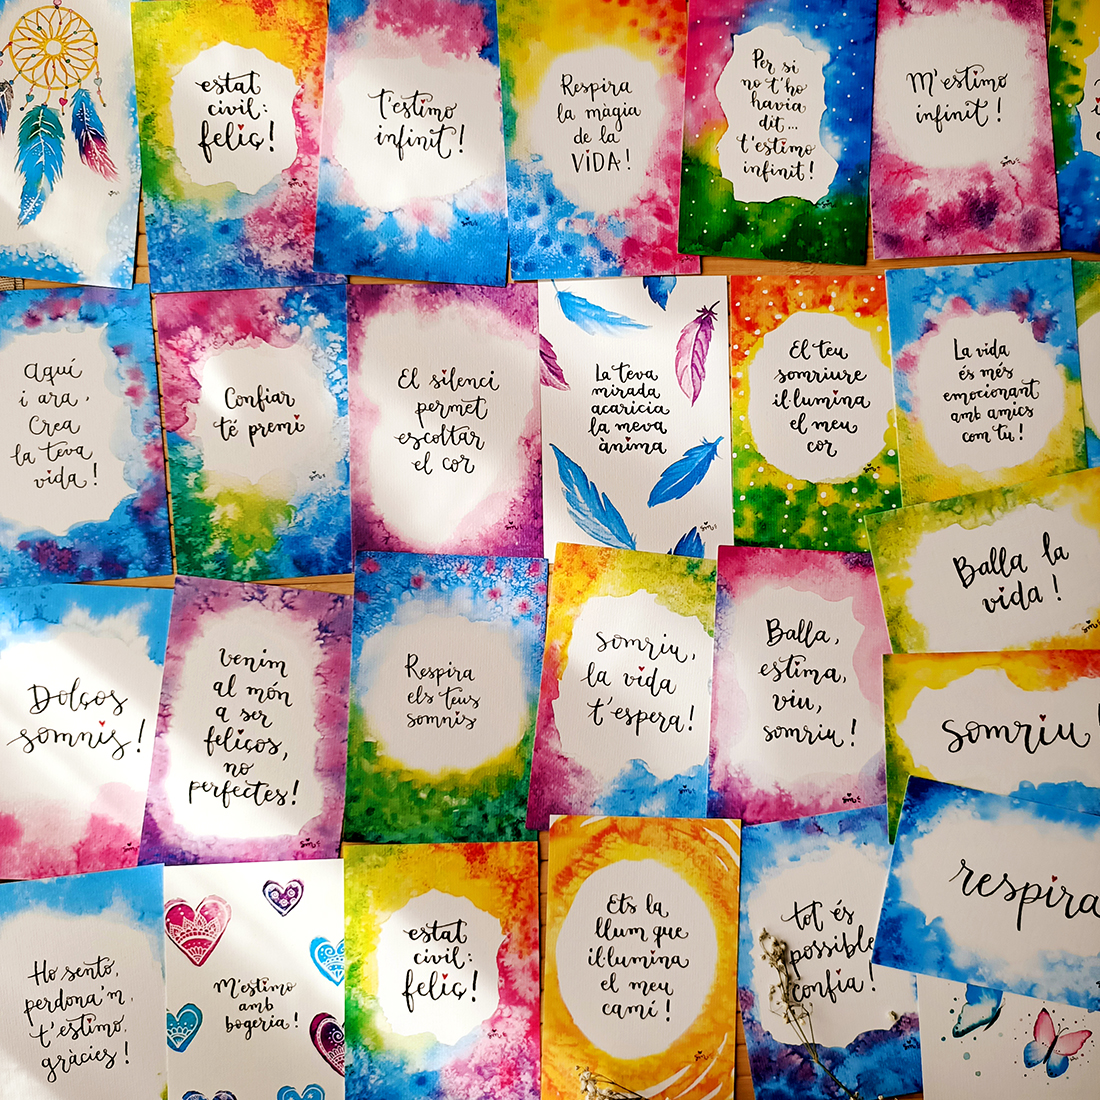 estat
civil:
feliç!
t'estimo
infinit!
Respira
la màgia
de la
VIDA!
Per si
no t'ho
havia
dit...
t'estimo
infinit!
M'estimo
infinit!
Aquí
i ara,
Crea
la teva
vida!
Confiar
té premi
El silenci
permet
escoltar
el cor
La teva
mirada
acaricia
la meva
ànima
El teu
somriure
il·lumina
el meu
cor
La vida
és més
emocionant
amb amics
com tu!
Balla la
vida!
Dolços
somnis!
venim
al món
a ser
feliços,
no
perfectes!
Respira
els teus
somnis
somriu,
la vida
t'espera!
Balla,
estima,
viu,
somriu!
somriu!
respira
Ho sento,
perdona'm,
t'estimo,
gràcies!
M'estimo
amb
bogeria!
estat
civil:
feliç!
Ets la
llum que
il·lumina
el meu
camí!
tot és
possible
confia!